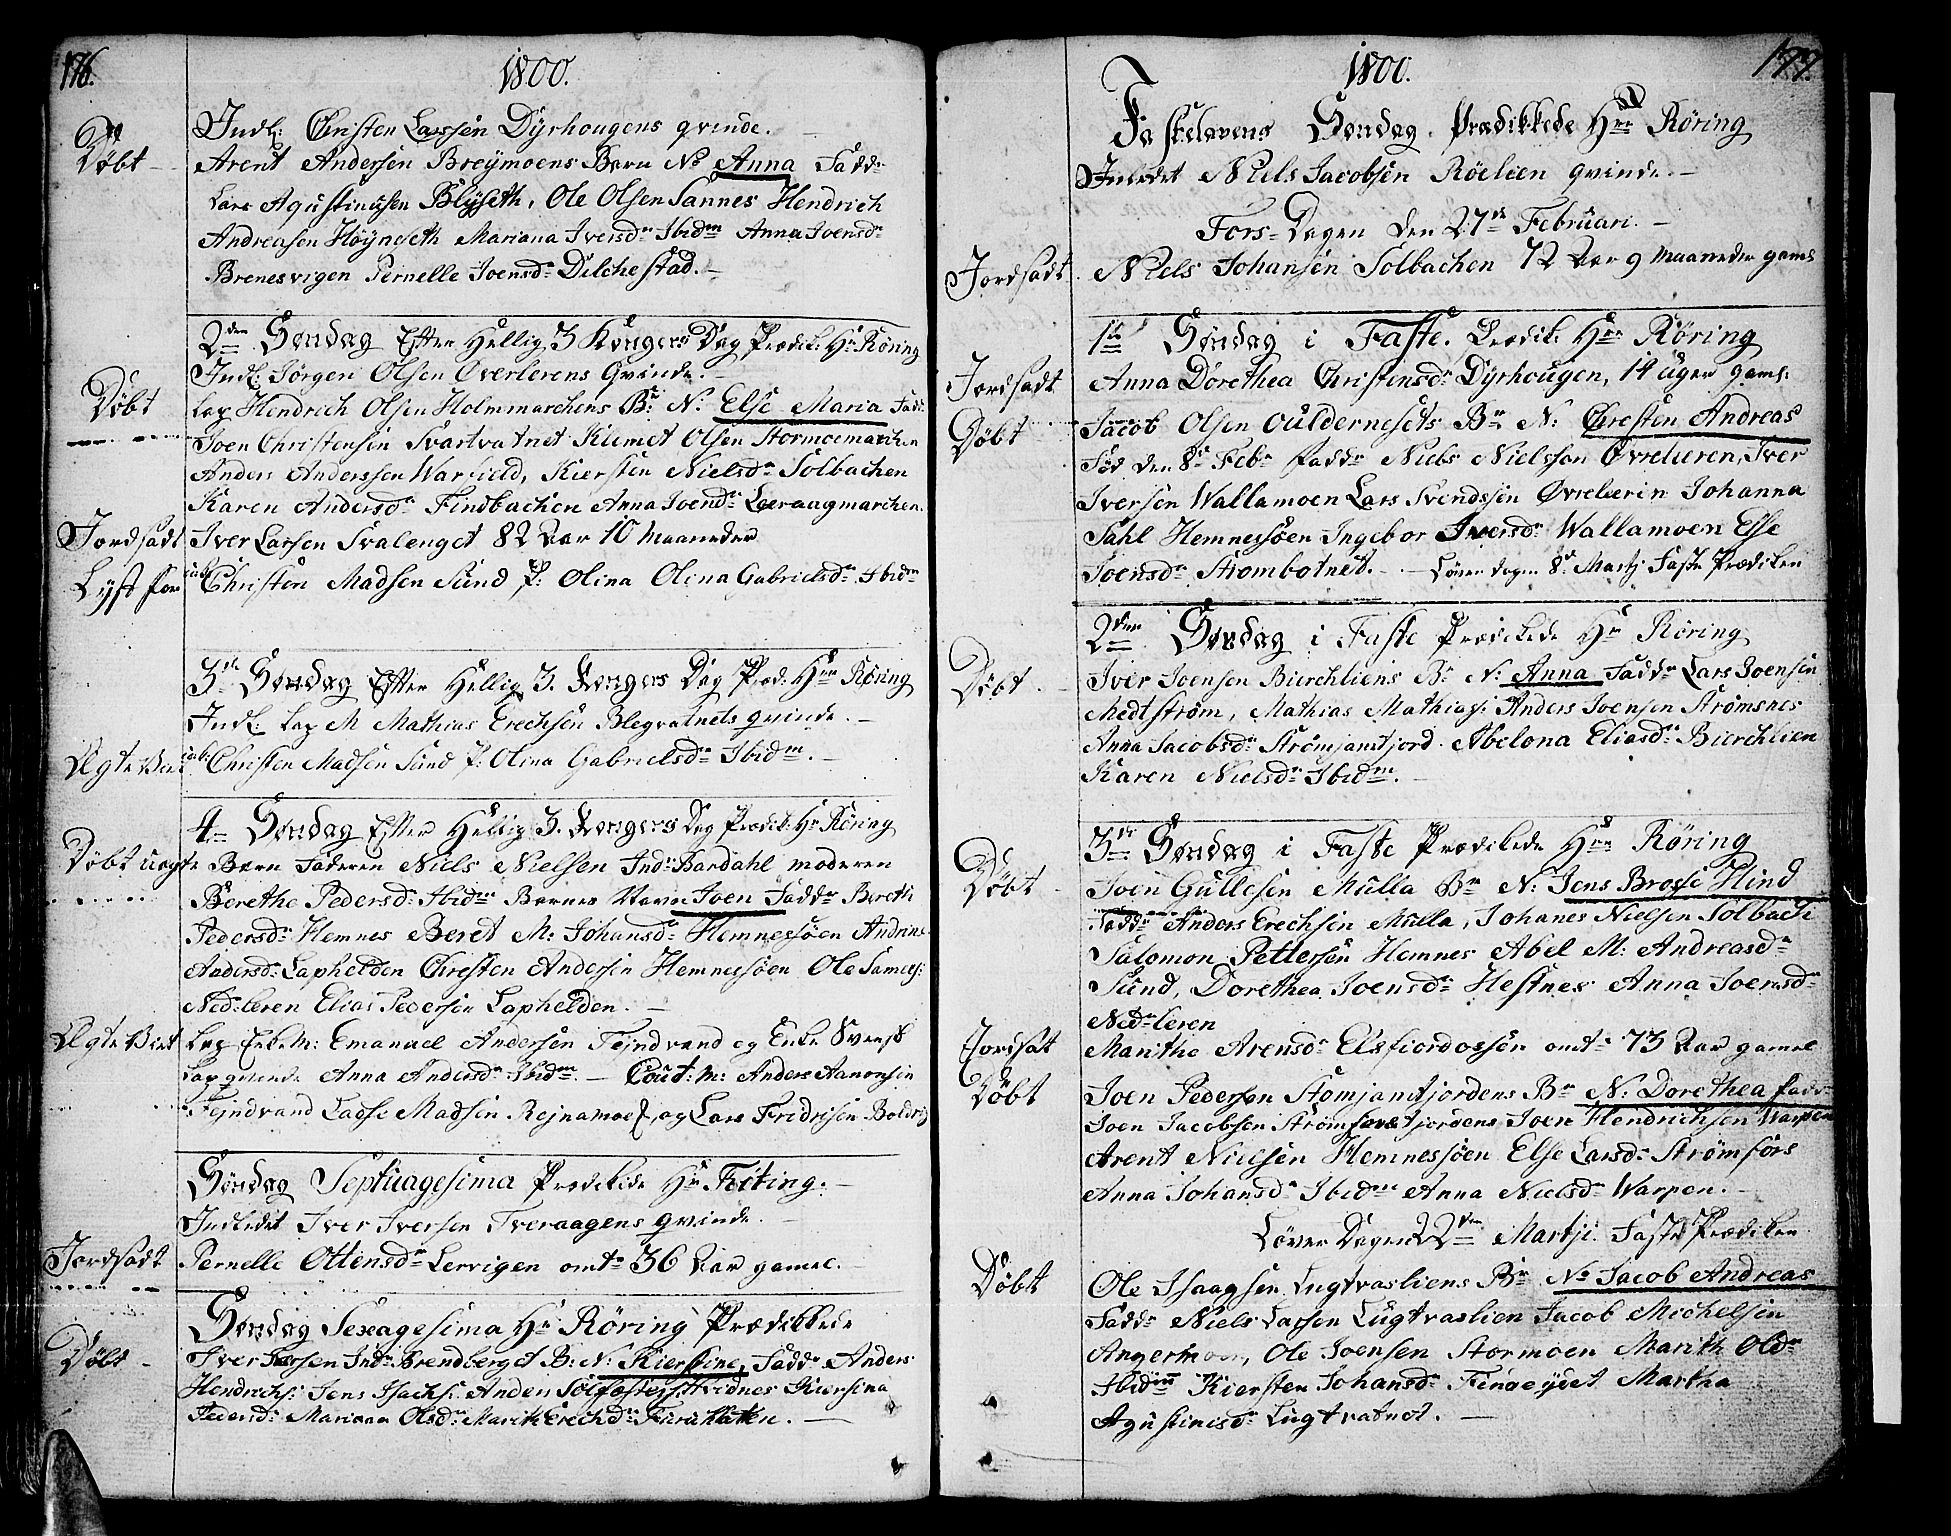 176.
1800.
Indl: Christen Larssen Dyrhougens qvinde. —
Döbt —
Arent Andersen Breÿmoens Barn N: Anna Fadd:
Lars Agustinusen Blÿseth, Ole Olsen Sannes Hendrich
Andreasen Höÿneseth Mariana Iversd: Ibidm Anna Joensd:
Brenesvigen Pernelle Joensd: Dilchestad. —
2den Søndag Efter Hellig 3 Kongers Dag Prædik: Hr Röring
Indl: Jörgen Olsen Overlerens Qvinde. —
Döbt
Lap Hendrich Olsen Holmmarchens B: N: Else Maria Fadd:
Joen Christensen Svartvatnet Klemet Olsen Stormoemarchen
Anders Anderssen Warfield, Kiersten Nielsd: Solbachen
Karen Andersd: Findbachen Anna Joend: Leeraagmarchen.
Jordsadt
Iver Larsen Svalenget 82 Aar 10 Maaneder
Lyst for
Christen Madsen Sund P: Olina Olina Gabrielsd: Ibidm
3de Søndag Efter Hellig 3. Kongers Dag Præd: Hr Röring
Indl: Lap M Mathias Erechsen Blegvatnets qvinde. —
Ægte Viet
Christen Madsen Sund P: Olina Gabrielsd: Ibidm. —
4de Søndag Efter Hellig 3. Kongers Dag Prædik: Hr Röring
Döbt uegte
Barn Faderen Niels Nielsen Ind: Bardahl moderen
Berethe Pedersd: Ibidm Barnes Navn Joen Fadd: Bereth
Pedersd: Hemnes Beret M: Johansd: Hemnessöen Andrine
Andersd: Laphelden Christen Andersen Hemnessöen Ole Samuels:
Ned:leren Elias Pedersen Laphelden. —
Ægte Viet
Lap Enkem: Emanuel Andersen Fejndvand og Enke Svensk
Lap qvinde Anna Andersd: Ibidm. — Cout: m: Anders Aanonsen
Fejndvand Ladse Madsen Rejnamoe, og Lars Fredrisen Boldrig
Söndag Septuagesima Prædikede Hr Röring. —
Indledet Iver Iversen Tveraagens qvinde. —
Jordsadt
Pernelle Ottensd: Lervigen omt: 36 Aar gamel. —
Søndag Sexagesima Hr Röring Prædikkede
Döbt —
Iver Larsen Ind: Brendberget B: N: Kierstine, Fadd: Anders
Hendrichs: Jens Isachs: Anders Solfesters: Hvidnes Kiersina
Pedersd: Mariana Olsd: Marith Erechd: Furuhatten. —
177.
1800.
Fastelavens Søndag. Prædikkede Hrr Röring
Inledet Niels Jacobsen Röelien qvinde. —
Tors-Dagen den 27de Februari. —
Jordsadt.
Niels Johansen Solbachen 72 Aar 9 Maaneder gaml
1te Søndag i Faste. Prædik: Hr Röring
Jordsadt
Anna Dorethea Christensd: Dyrhougen, 14 uger gaml:
Döbt
Jacob Olsen Ouldernesets Bn N: Christen Andreas
Föd den 8de Febr Fadd: Niels Nielssen Övreleren, Iver
Iversen Wallamoen Lars Svendssen Övreleren Johanna
Sahl Hemnessöen Ingebor Iversd: Wallamoen Else
Joensd: Strombotnet. — Löverdagen 8de Martj Faste Prædiken
2den Søndag i Faste Prædikede Hr Röring
Döbt.
Iver Joensen Bierchliens B: N: Anna Fadd: Lars Joensen
Medtström, Mathias Mathias: Anders Joensen Strömsnes
Anna Jacobsd: Strömjamtjord. Abelona Eliasd: Bierchlien
Karen Nielsd: Ibidm. —
3de Søndag i Faste Prædikede Hrr Röring
Döbt
Joen Gullesen Mulla Bn N: Jens Brosse Hind
Fadd: Anders Erechsen Mulla, Johanes Nielsen Solbach
Salomon Pettersen Hemnes Abel M: Andreasd:
Sund, Dorethea Joensd: Hestnes Anna Joensd:
Ned:leren
Jordsat
Marithe Arensd: Elsfiordossen omt: 73 Aar gamel
Döbt
Joen Pedersen Stomjamtjordens Bn N: Dorethea Fadd:
Joen Jacobsen Strömjamtjordens Joen Hendrichsen Warpen
Arent Nielsen Hemnessöen Else Larsd: Strömfors
Anna Johansd: Ibidm Anna Nielsd: Warpen. —
Löver Dagen 22den Martji. Faste Prædiken
Döbt
Ole Isaagsen Lugtvasliens Bn N: Jacob Andreas
Fadd: Niels Larsen Lugtvaslien Jacob Michelsen
Angermoen, Ole Joensen Stormoen Marith Olsd:
Ibidm Kiersten Johansd: Fineÿdet Martha
Agustinisd: Lugtvatnet. —